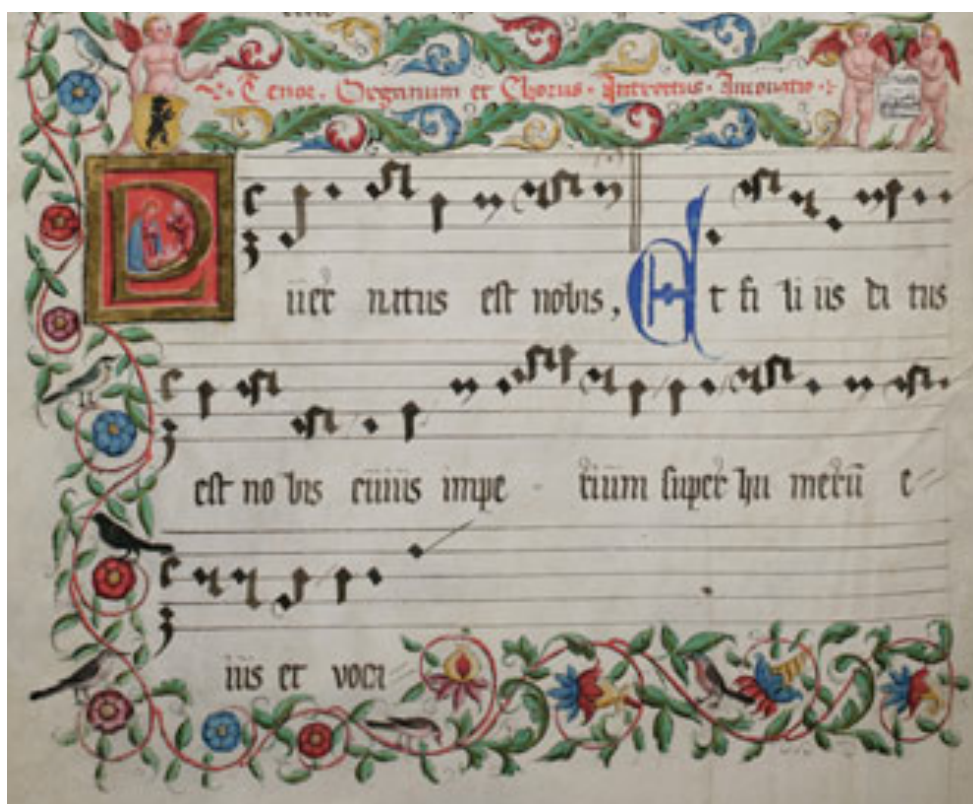 Tenor. Organum et Chorus. Introitus. Intonatio
Puer natus est nobis, Et fi li us da tus
est no bis cuius impe - rium super hu merū e
ius et voca